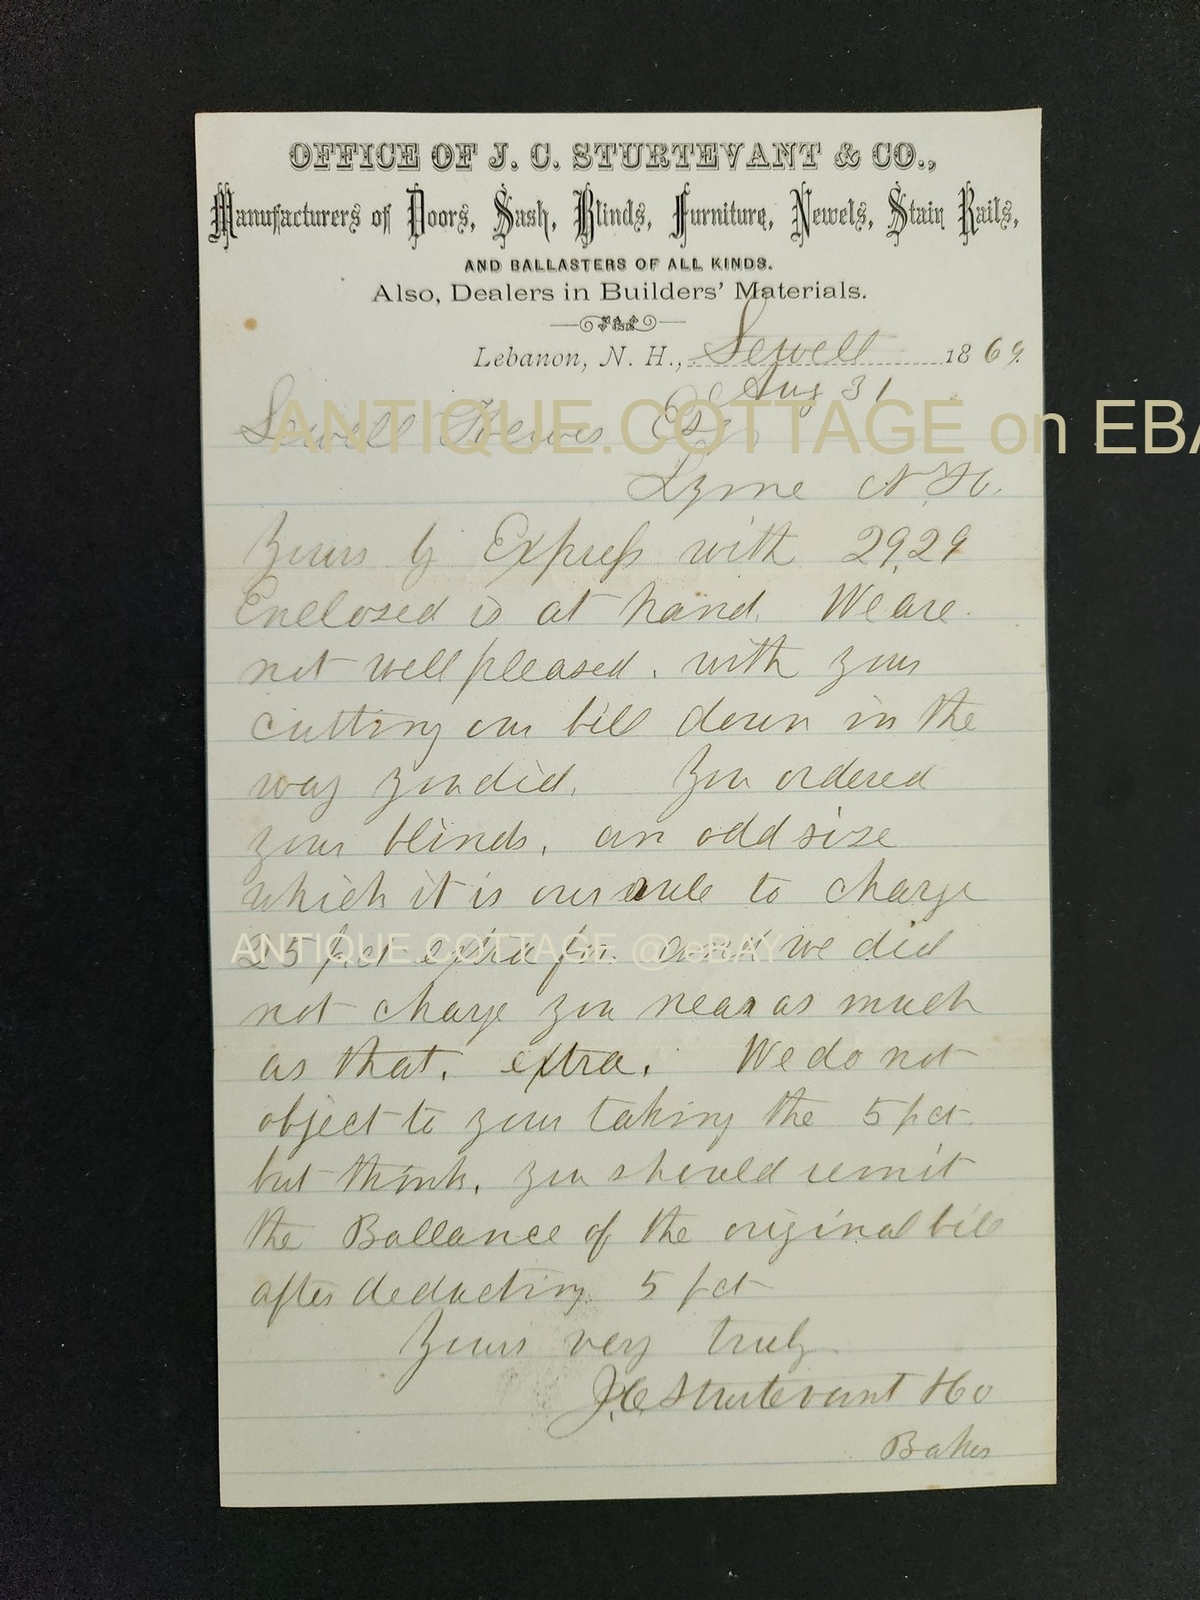 OFFICE OF J. C. STURTEVANT & CO.,
Manufacturers of Doors, Sash, Blinds, Furniture, Newels, Stair Rails,
AND BALLASTERS OF ALL KINDS.
Also, Dealers in Builders' Materials.
Lebanon, N. H., Sewell 1869
Aug 31
Sewell Esq
ANTIQUE.COTTAGE on EBA
Lyme N.H.
Yours by Express with 29,29
Enclosed is at hand. We are
not well pleased, with your
cutting our bill down in the
way you did. You ordered
your blinds, an odd size
which it is our rule to charge
25 pct extra for and we did
ANTIQUE.COTTAGE @ eBAY
not charge you near as much
as that, extra. We do not
object to your taking the 5 pct
but think, you should remit
the Ballance of the original bill
after deducting 5 pct
Yours very truly
J.C. Sturtevant & Co
Baker